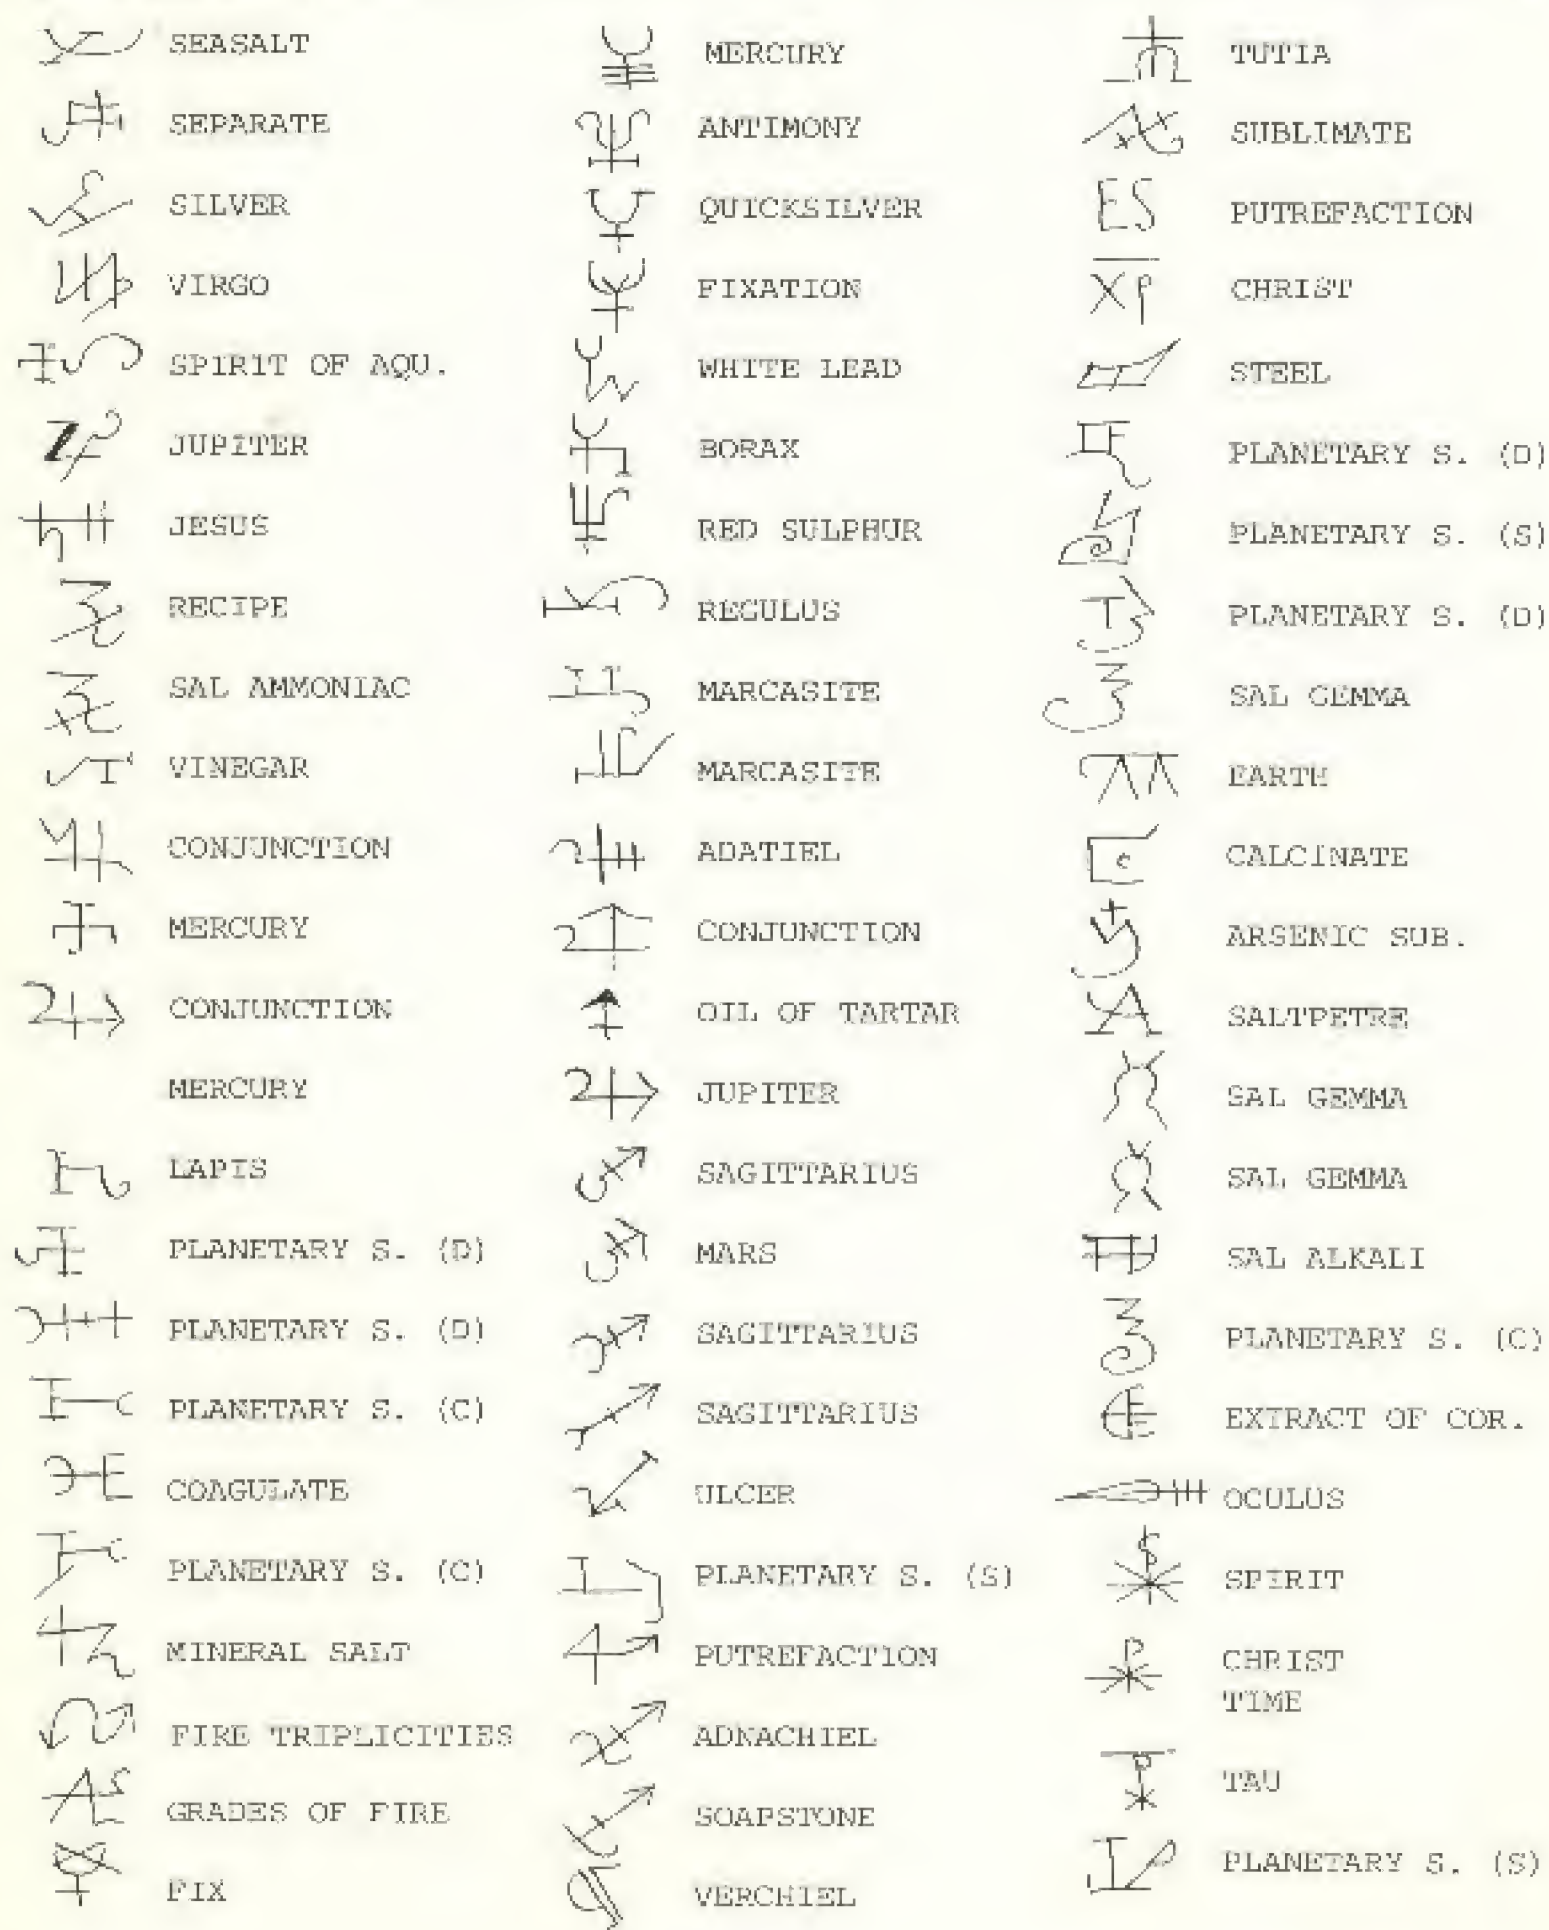 SEASALT
SEPARATE
SILVER
VIRGO
SPIRIT OF AQU.
JUPITER
JESUS
RECIPE
SAL AMMONIAC
VINEGAR
CONJUNCTION
MERCURY
CONJUNCTION
MERCURY
LAPIS
PLANETARY S. (D)
PLANETARY S. (D)
PLANETARY S. (C)
COAGULATE
PLANETARY S. (C)
MINERAL SALT
FIRE TRIPLICITIES
GRADES OF FIRE
FIX
MERCURY
ANTIMONY
QUICKSILVER
FIXATION
WHITE LEAD
BORAX
RED SULPHUR
REGULUS
MARCASITE
MARCASITE
ADATIEL
CONJUNCTION
OIL OF TARTAR
JUPITER
SAGITTARIUS
MARS
SAGITTARIUS
SAGITTARIUS
ULCER
PLANETARY S. (S)
PUTREFACTION
ADNACHIEL
SOAPSTONE
VERCHIEL
TUTIA
SUBLIMATE
PUTREFACTION
CHRIST
STEEL
PLANETARY S. (D)
PLANETARY S. (S)
PLANETARY S. (D)
SAL GEMMA
EARTH
CALCINATE
ARSENIC SUB.
SALTPETRE
SAL GEMMA
SAL GEMMA
SAL ALKALI
PLANETARY S. (C)
EXTRACT OF COR.
OCULUS
SPIRIT
CHRIST
TIME
TAU
PLANETARY S. (S)